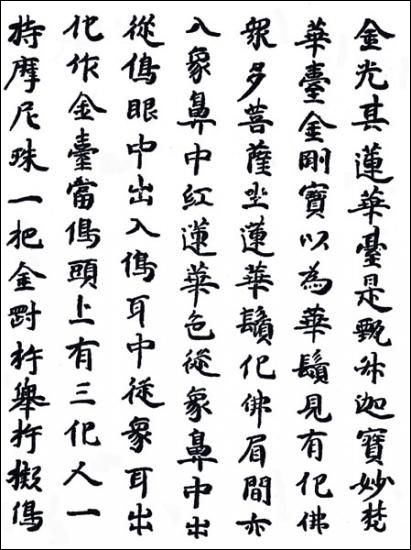 金光其蓮華臺是甄叔迦寶妙梵
華臺金剛寶以為華鬚見有化佛
眾多菩薩坐蓮華鬚化佛眉間亦
入象鼻中紅蓮華色從象鼻中出
從像眼中出入像耳中從象耳出
化作金臺當像頭上有三化人一
持摩尼珠一把金剛杵舉杵擬像